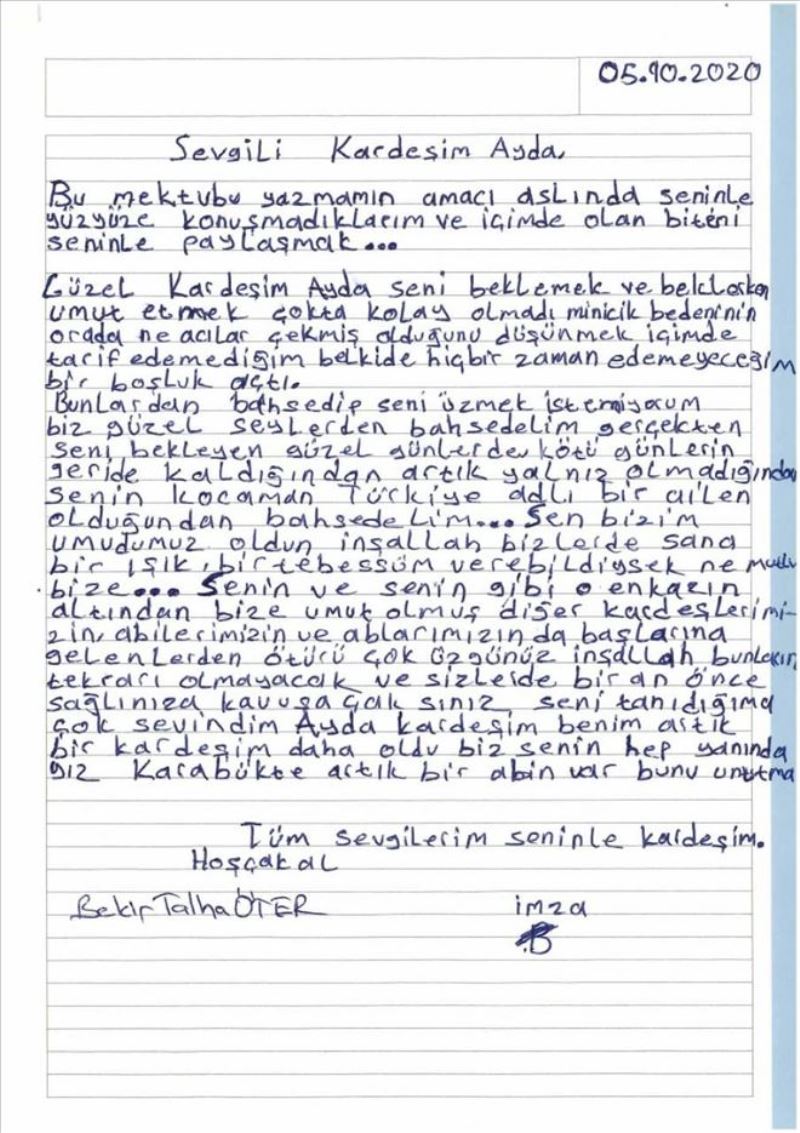 05.10.2020
Sevgili Kardeşim Ayda,
Bu mektubu yazmamın amacı aslında seninle
yüzyüze konuşmadıklarım ve içimde olan biteni
seninle paylaşmak...
Güzel Kardeşim Ayda seni beklemek ve beklerken
umut etmek çokta kolay olmadı minicik bedeninin
orada ne acılar çekmiş olduğunu düşünmek içimde
tarif edemediğim belkide hiçbir zaman edemeyeceğim
bir boşluk açtı.
Bunlardan bahsedip seni üzmek istemiyorum
biz güzel şeylerden bahsedelim gerçekten
seni bekleyen güzel günlerde, kötü günlerin
geride kaldığından artık yalnız olmadığından
senin kocaman Türkiye adlı bir ailen
olduğundan bahsedelim... Sen bizim
umudumuz oldun inşallah bizlerde sana
bir ışık, bir tebessüm verebildiysek ne mutlu
bize... Senin ve senin gibi o enkazın
altından bize umut olmuş diğer kardeşlerimi-
zin, abilerimizin ve ablarımızın da başlarına
gelenlerden ötürü çok üzgünüz inşallah bunların
tekrarı olmayacak ve sizlerde bir an önce
sağlınıza kavuşacak sınız seni tanıdığıma
çok sevindim Ayda kardeşim benim artık
bir kardeşim daha oldu biz senin hep yanında
yız Karabükte artık bir abin var bunu unutma
Tüm sevgilerim seninle kardeşim.
Hoşçakal
Bekir Talha ÖTER imza
B